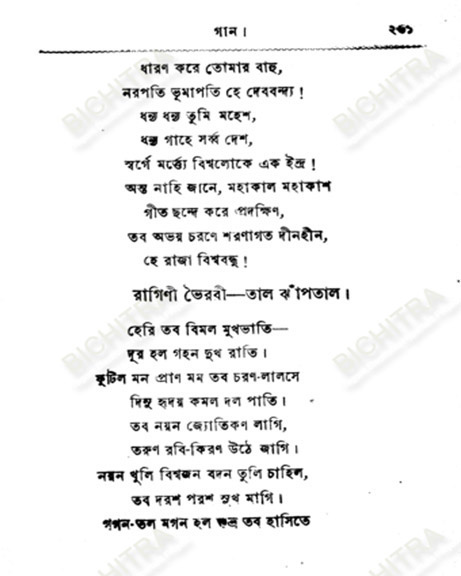 গান। ২৩১
ধারণ করে তোমার বাহু,
নরপতি ভূমাপতি হে দেববন্দ্য!
ধন্য ধন্য তুমি মহেশ,
ধন্য গাহে সর্ব্ব দেশ,
স্বর্গে মর্ত্ত্যে বিশ্বলোকে এক ইন্দ্র!
অন্ত নাহি জানে, মহাকাল মহাকাশ
গীত ছন্দে করে প্রদক্ষিণ,
তব অভয় চরণে শরণাগত দীনহীন,
হে রাজা বিশ্ববন্ধু!
রাগিণী ভৈরবী—তাল ঝাঁপতাল।
হেরি তব বিমল মুখভাতি—
দূর হল গহন দুখ রাতি।
ফুটিল মন প্রাণ মম তব চরণ-লালসে
দিনু হৃদয় কমল দল পাতি।
তব নয়ন জ্যোতিকণ লাগি,
তরুণ রবি-কিরণ উঠে জাগি।
নয়ন খুলি বিশ্বজন বদন তুলি চাহিল,
তব দরশ পরশ সুখ মাগি।
গগন-তল মগন হল শুভ্র তব হাসিতে
BICHITRA
BICHITRA
BICHITRA
BICHITRA
BICHITRA
BICHITRA